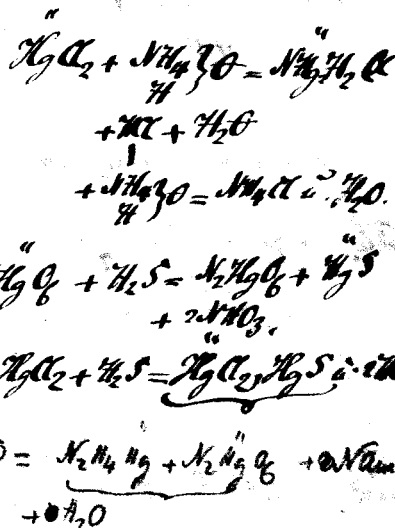 HgCl₂ + NH₄ } O = NHgH₂Cl
H
+ HCl + H₂O
+ NH₄ } O = NH₄Cl ü. H₂O.
H
HgO₆ + H₂S = N₂HgO₆ + HgS
+ 2NHO₃.
HgCl₂ + H₂S = HgCl₂, HgS ü. 2H
= N₂H₄Hg + N₂HgO₆ +
+ H₂O